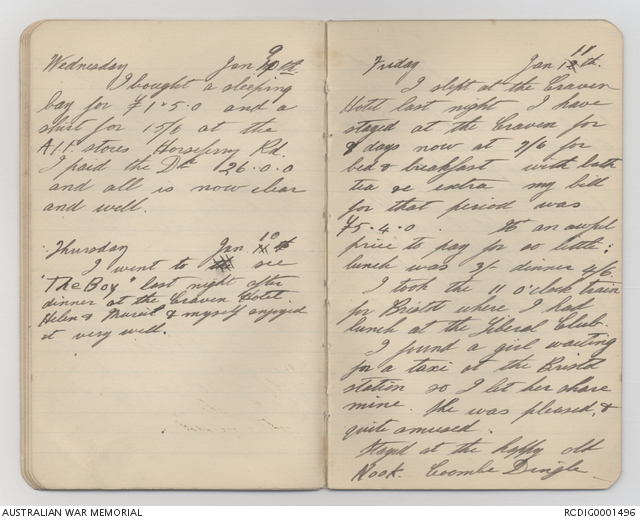 Wednesday Jan 9th
I bought a sleeping
bag for £1.5.0 and a
shirt for 15/6 at the
A.I.F. stores Horseferry Rd.
I paid the Dr £26.0.0
and all is now clear
and well.
Thursday Jan 10th
I went to see
"The Boy" last night after
dinner at the Craven Hotel.
Helen & Muriel & myself enjoyed
it very well.
Friday Jan 11th.
I slept at the Craven
Hotel last night I have
stayed at the Craven for
8 days now at 7/6 for
bed & breakfast with bath
tea &c extra my bill
for that period was
£5.4.0. It an awful
price to pay for so little;
lunch was 3/- dinner 4/6.
I took the 11 O'clock train
for Bristol where I had
lunch at the Liberal Club.
I found a girl waiting
for a taxi at the Bristol
station so I let her share
mine. She was pleased, &
quite amused.
Stayed at the happy old
Nook. Coombe Dingle
AUSTRALIAN WAR MEMORIAL
RCDIG0001496